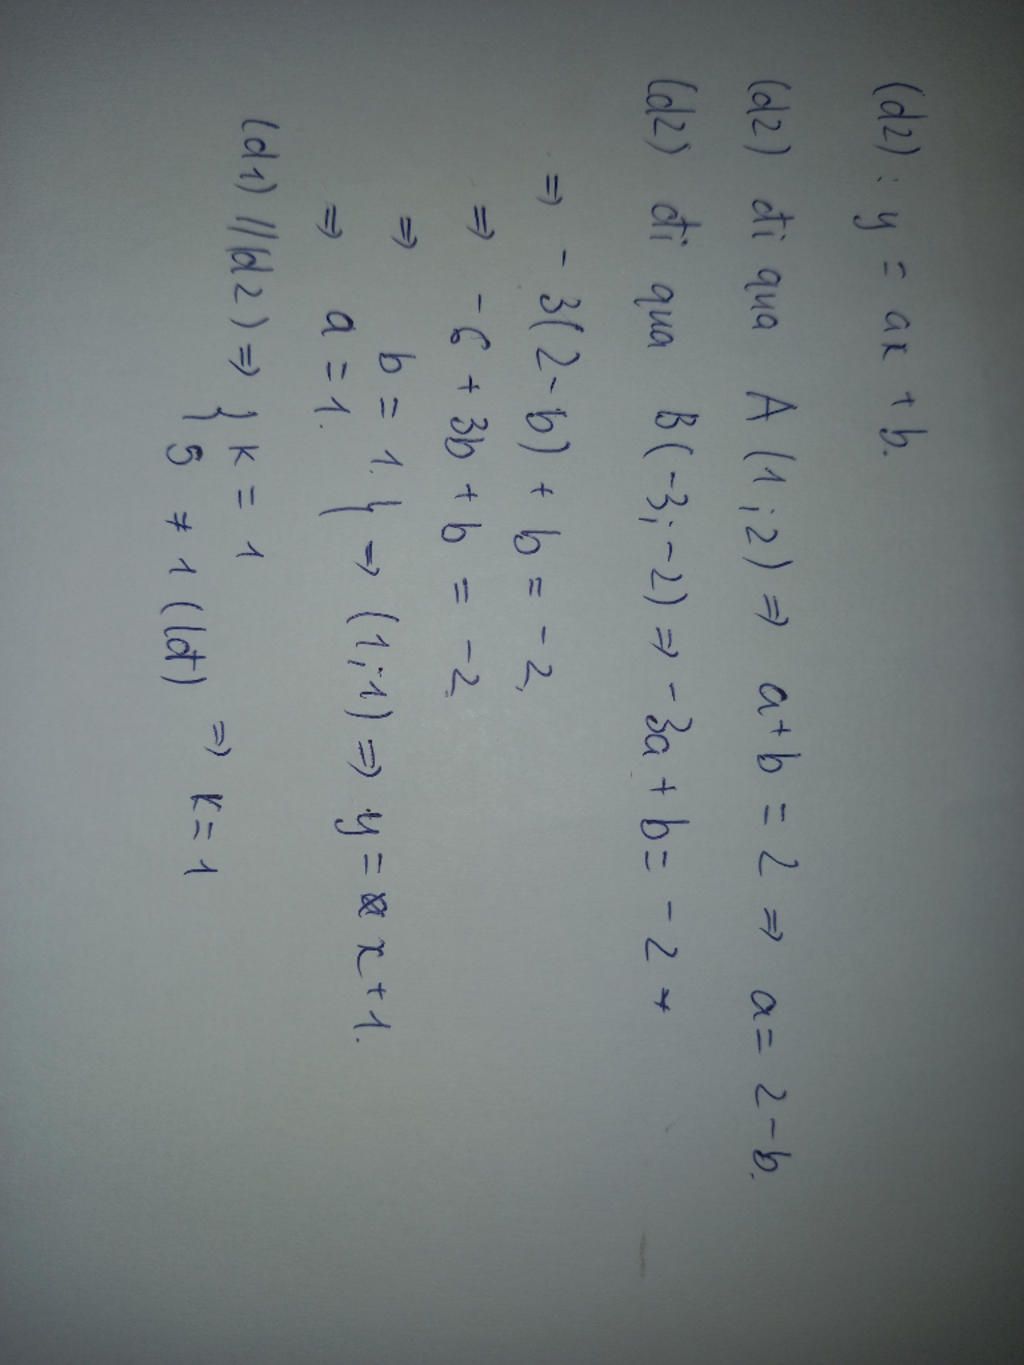 (d2) : y = ax + b.
(d2) đi qua A (1 ; 2) => a+b = 2 => a = 2 - b.
(d2) đi qua B(-3; -2) => -3a + b = -2 *
=> - 3(2 - b) + b = - 2
=> - 6 + 3b + b = - 2
=> b = 1. } => (1 ; 1) => y = x + 1.
=> a = 1.
(d1) // (d2) => { k = 1
5 ≠ 1 (lđ) => k = 1